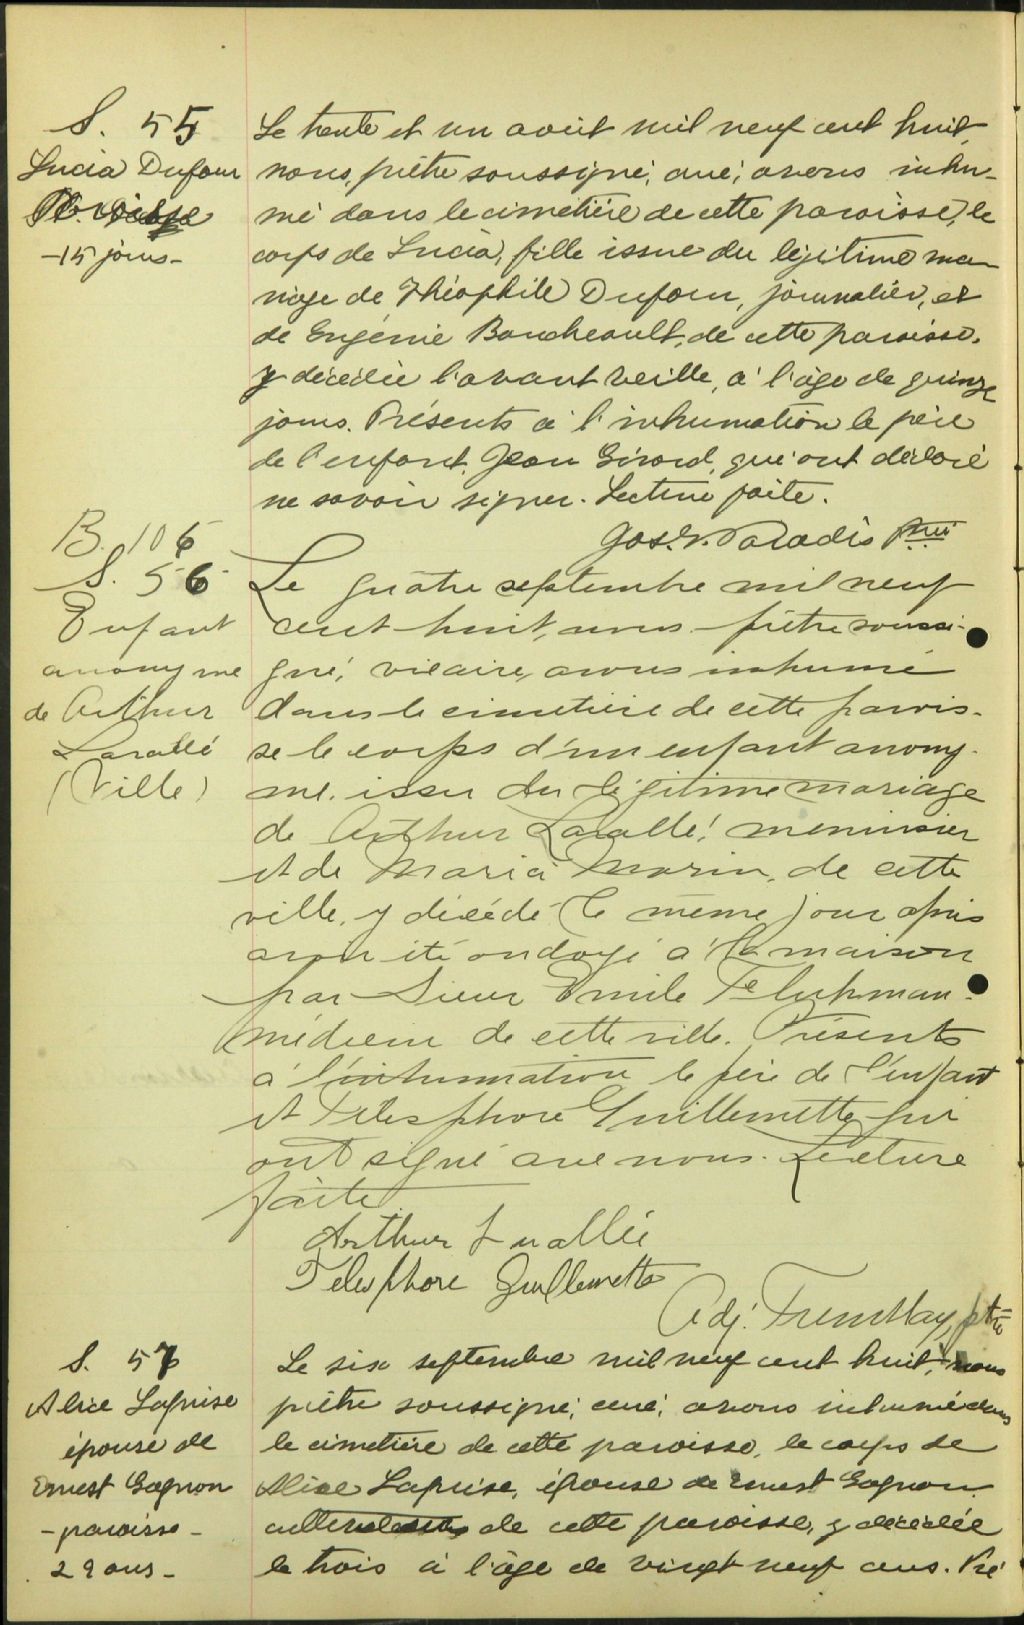 S. 55
Lucia Dufour
Paroisse
-15 jours-
Le trente et un août mil neuf cent huit,
nous, prêtre soussigné, curé, avons inhu-
mé dans le cimetière de cette paroisse, le
corps de Lucia, fille issue du légitime ma-
riage de Théophile Dufour, journalier, et
de Eugénie Boucheault, de cette paroisse.
y décédée l'avant veille, à l'âge de quinze
jours. Présents à l'inhumation le père
de l'enfant, Jean Girard, qui ont déclaré
ne savoir signer. Lecture faite.
Jos. Paradis Ptre
B. 106
S. 56
Enfant
anonyme
de Arthur
Lavallé
(Ville)
Le quatre septembre mil neuf
cent huit, nous prêtre soussi-
gné, vicaire, avons inhumé
dans le cimetière de cette parois-
se le corps d'un enfant anony-
me, issu du légitime mariage
de Arthur Lavallé, menuisier
et de Maria Morin, de cette
ville, y décédé le même jour après
avoir été ondoyé à la maison
par Sieur Emile
médecin de cette ville. Présents
à l'inhumation le père de l'enfant
et Télesphore Guillemette qui
ont signé avec nous. Lecture
faite
Arthur Lavallée
Telesphore Guillemette
Adj. Tremblay, ptre
S. 57
Alice Laprise
épouse de
Ernest Gagnon
-paroisse-
29 ans-
Le six septembre mil neuf cent huit, nous
prêtre soussigné, curé, avons inhumé dans
le cimetière de cette paroisse, le corps de
Alice Laprise, épouse de Ernest Gagnon
cultivateur de cette paroisse, y décédée
le trois à l'âge de vingt neuf ans. Pré